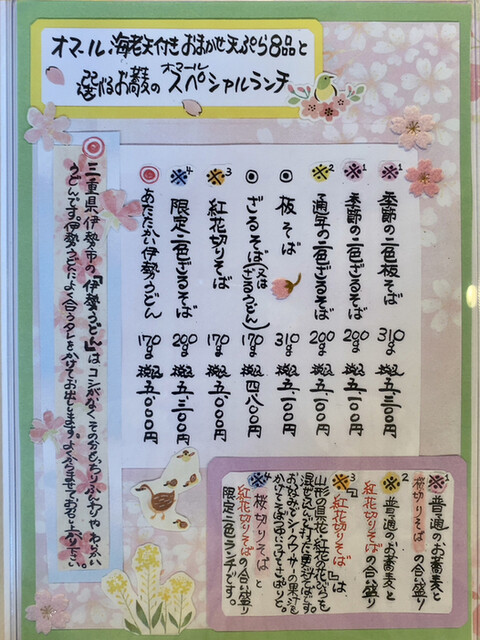 オマール海老天付きおまかせ天ぷら8品と
選べるお蕎麦のスペシャルランチ
オマール
※1 季節の二色板そば 310g 税込五、三〇〇円
※1 季節の二色ざるそば 200g 税込五、一〇〇円
※2 通年の二色ざるそば 200g 税込五、一〇〇円
◎ 板そば 310g 税込五、一〇〇円
◎ ざるそば(又はざるうどん) 170g 税込四、八〇〇円
※3 紅花切りそば 170g 税込五、〇〇〇円
※4 限定二色ざるそば 200g 税込五、三〇〇円
◎ あたたかい伊勢うどん 170g 税込五、〇〇〇円
◎ 三重県伊勢市の『伊勢うどん』はコシがなくそのおもっちりふんわりやわらかい
うどんです。伊勢うどんによく合うタレをかけてお出しします。よくからませてお召し上がり下さい。
※1 普通のお蕎麦と
桜切りそばの合い盛り
※2 普通のお蕎麦と
紅花切りそばの合い盛り
※3 『紅花切りそば』は
山形の県花・紅花の花びらを
混ぜ込んで打った更科そばです。
おなみでシークヮーサーの果汁を
かけてそばつゆにつけてさっぱりと。
※4 桜切りそばと
紅花切りそばの合い盛り
限定二色ランチです。